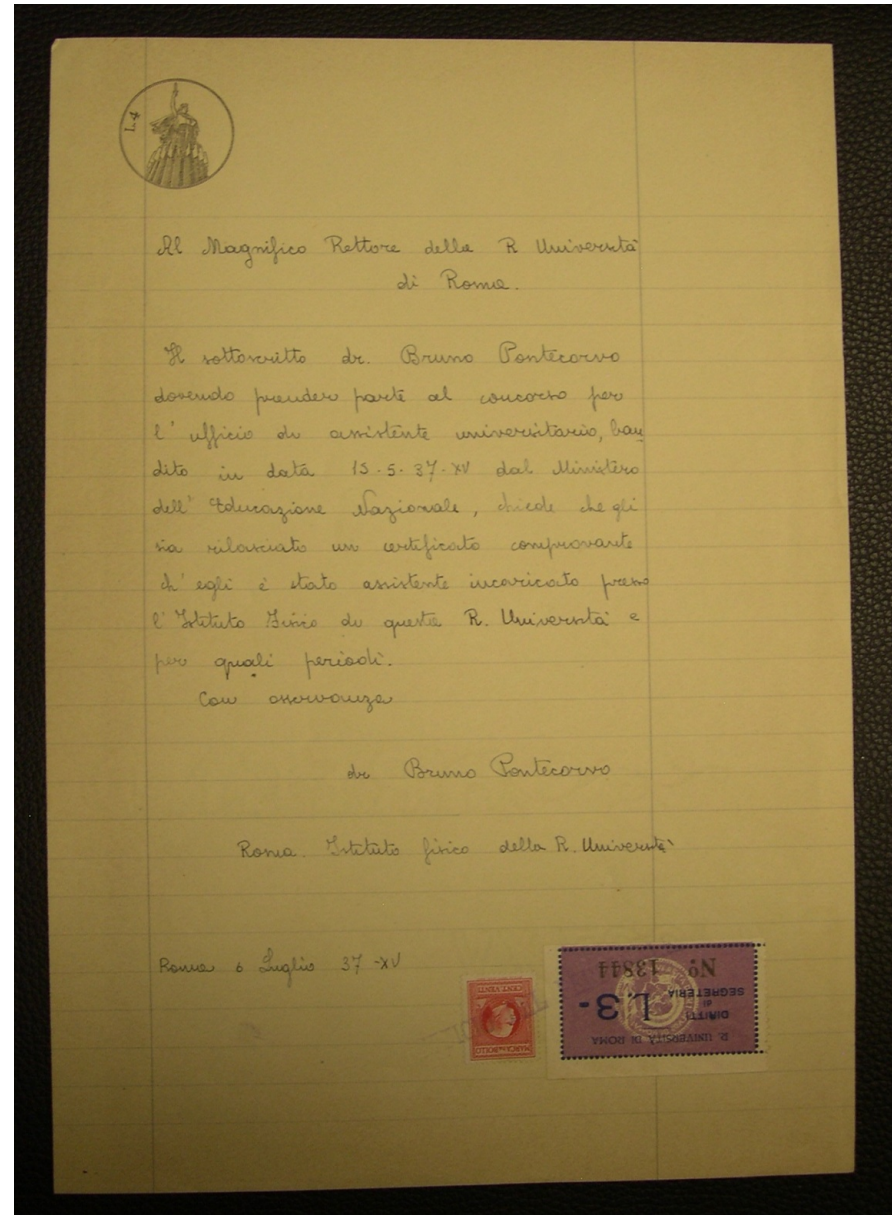 L.4
Al Magnifico Rettore della R Università
di Roma.
Il sottoscritto dr. Bruno Pontecorvo
dovendo prender parte al concorso per
l' ufficio di assistente universitario, ban
dito in data 15.5.37-XV dal Ministero
dell' Educazione Nazionale, chiede che gli
sia rilasciato un certificato comprovante
ch' egli è stato assistente incaricato presso
l' Istituto Fisico di questa R. Università e
per quali periodi.
Con osservanza
dr Bruno Pontecorvo
Roma. Istituto fisico della R. Università
Roma 6 Luglio 37-XV
MARCA DA BOLLO
CENT. VENTI
R. UNIVERSITÀ DI ROMA
DIRITTI
di
SEGRETERIA
L.3-
No 13844